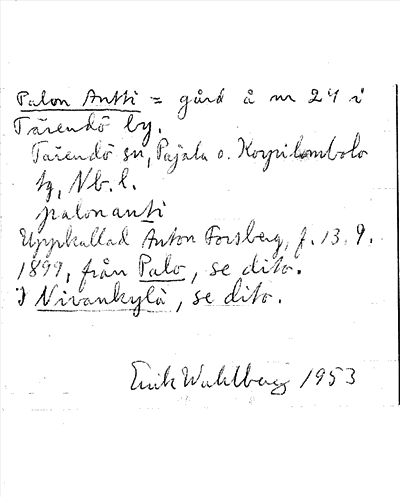 Palon Antti = gård å nr 24 i
Tärendö by.
Tärendö sn, Pajala o. Korpilombolo
tg, Nb. l.
palonanti
Uppkallad Anton Forsberg, f. 13.9.
1899, från Palo, se dito.
I Nivankylä, se dito.
Erik Wahlberg 1953